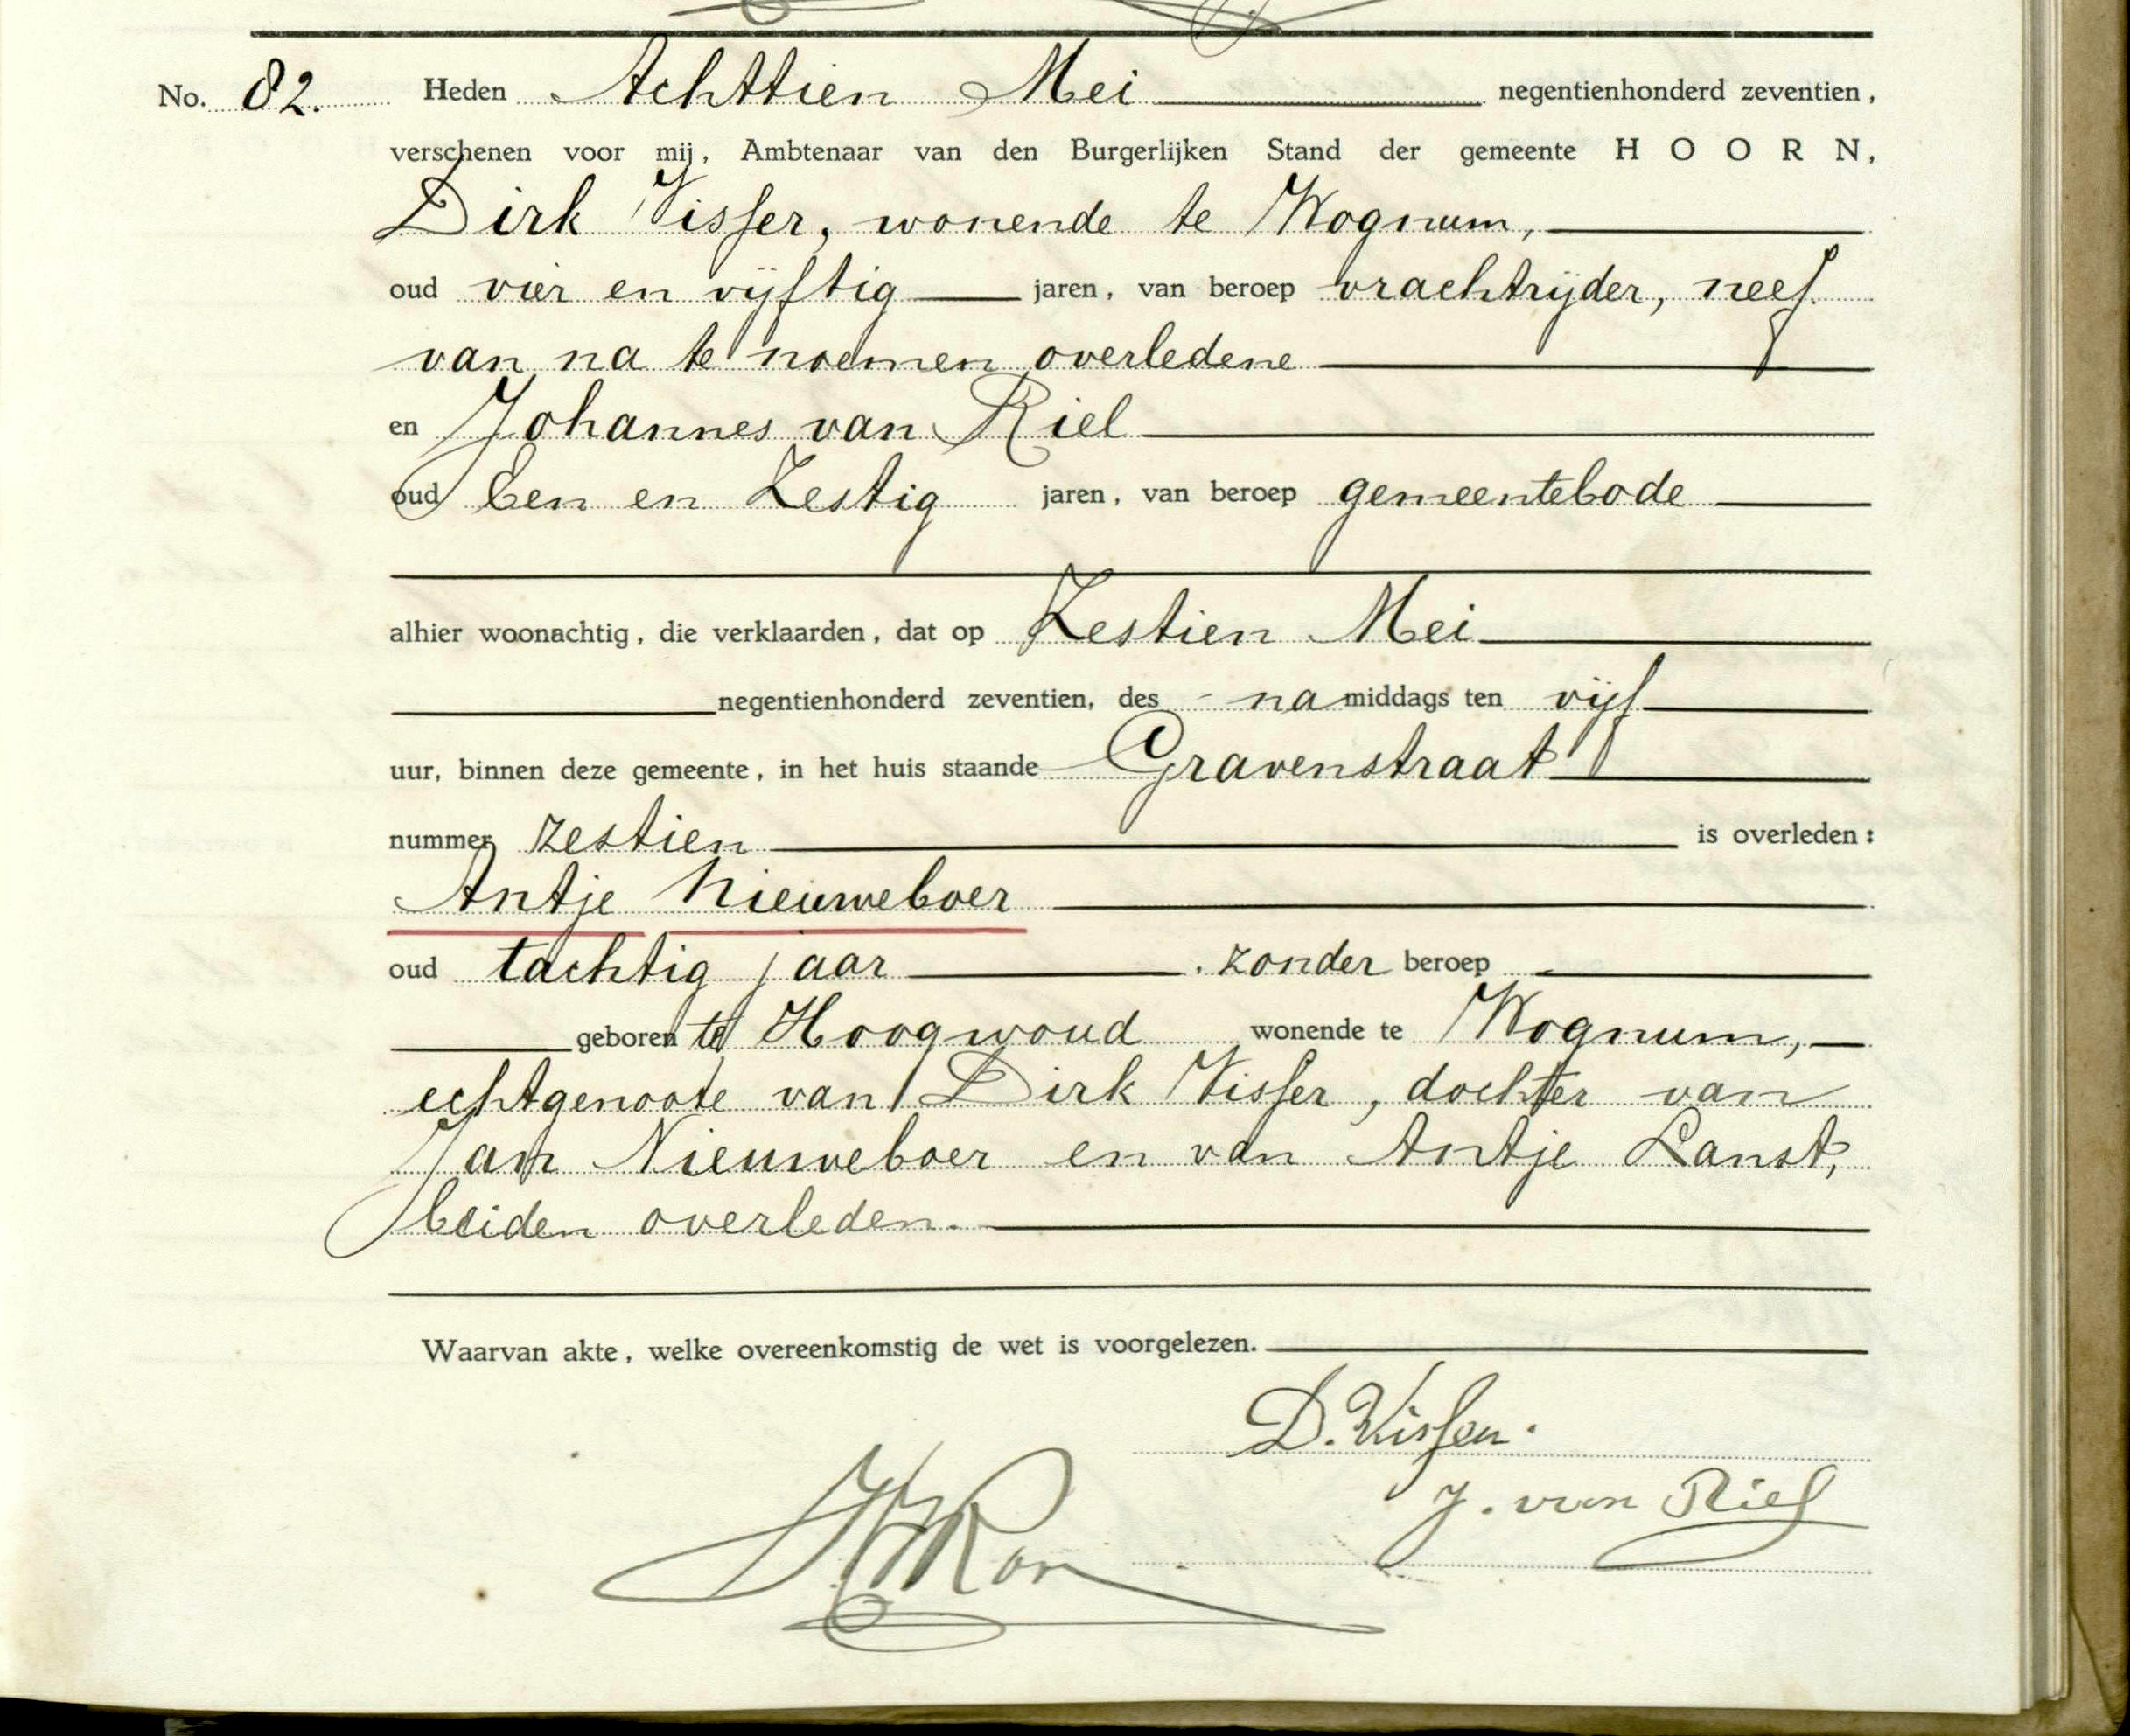 No. 82. Heden Achttien Mei negentienhonderd zeventien,
verschenen voor mij, Ambtenaar van den Burgerlijken Stand der gemeente HOORN,
Dirk Visser, wonende te Wognum,
oud vier en vijftig jaren, van beroep vrachtrijder, neef
van na te noemen overledene
en Johannes van Riel
oud Een en Zestig jaren, van beroep gemeentebode
alhier woonachtig, die verklaarden, dat op Zestien Mei
negentienhonderd zeventien, des - na middags ten vijf
uur, binnen deze gemeente, in het huis staande Gravenstraat
nummer zestien is overleden:
Antje Nieuweboer
oud tachtig jaar, zonder beroep
geboren te Hoogwoud wonende te Wognum,
echtgenoote van Dirk Visser, dochter van
Jan Nieuweboer en van Antje Lanst,
beiden overleden.
Waarvan akte, welke overeenkomstig de wet is voorgelezen.
D. Visser.
J. van Riel